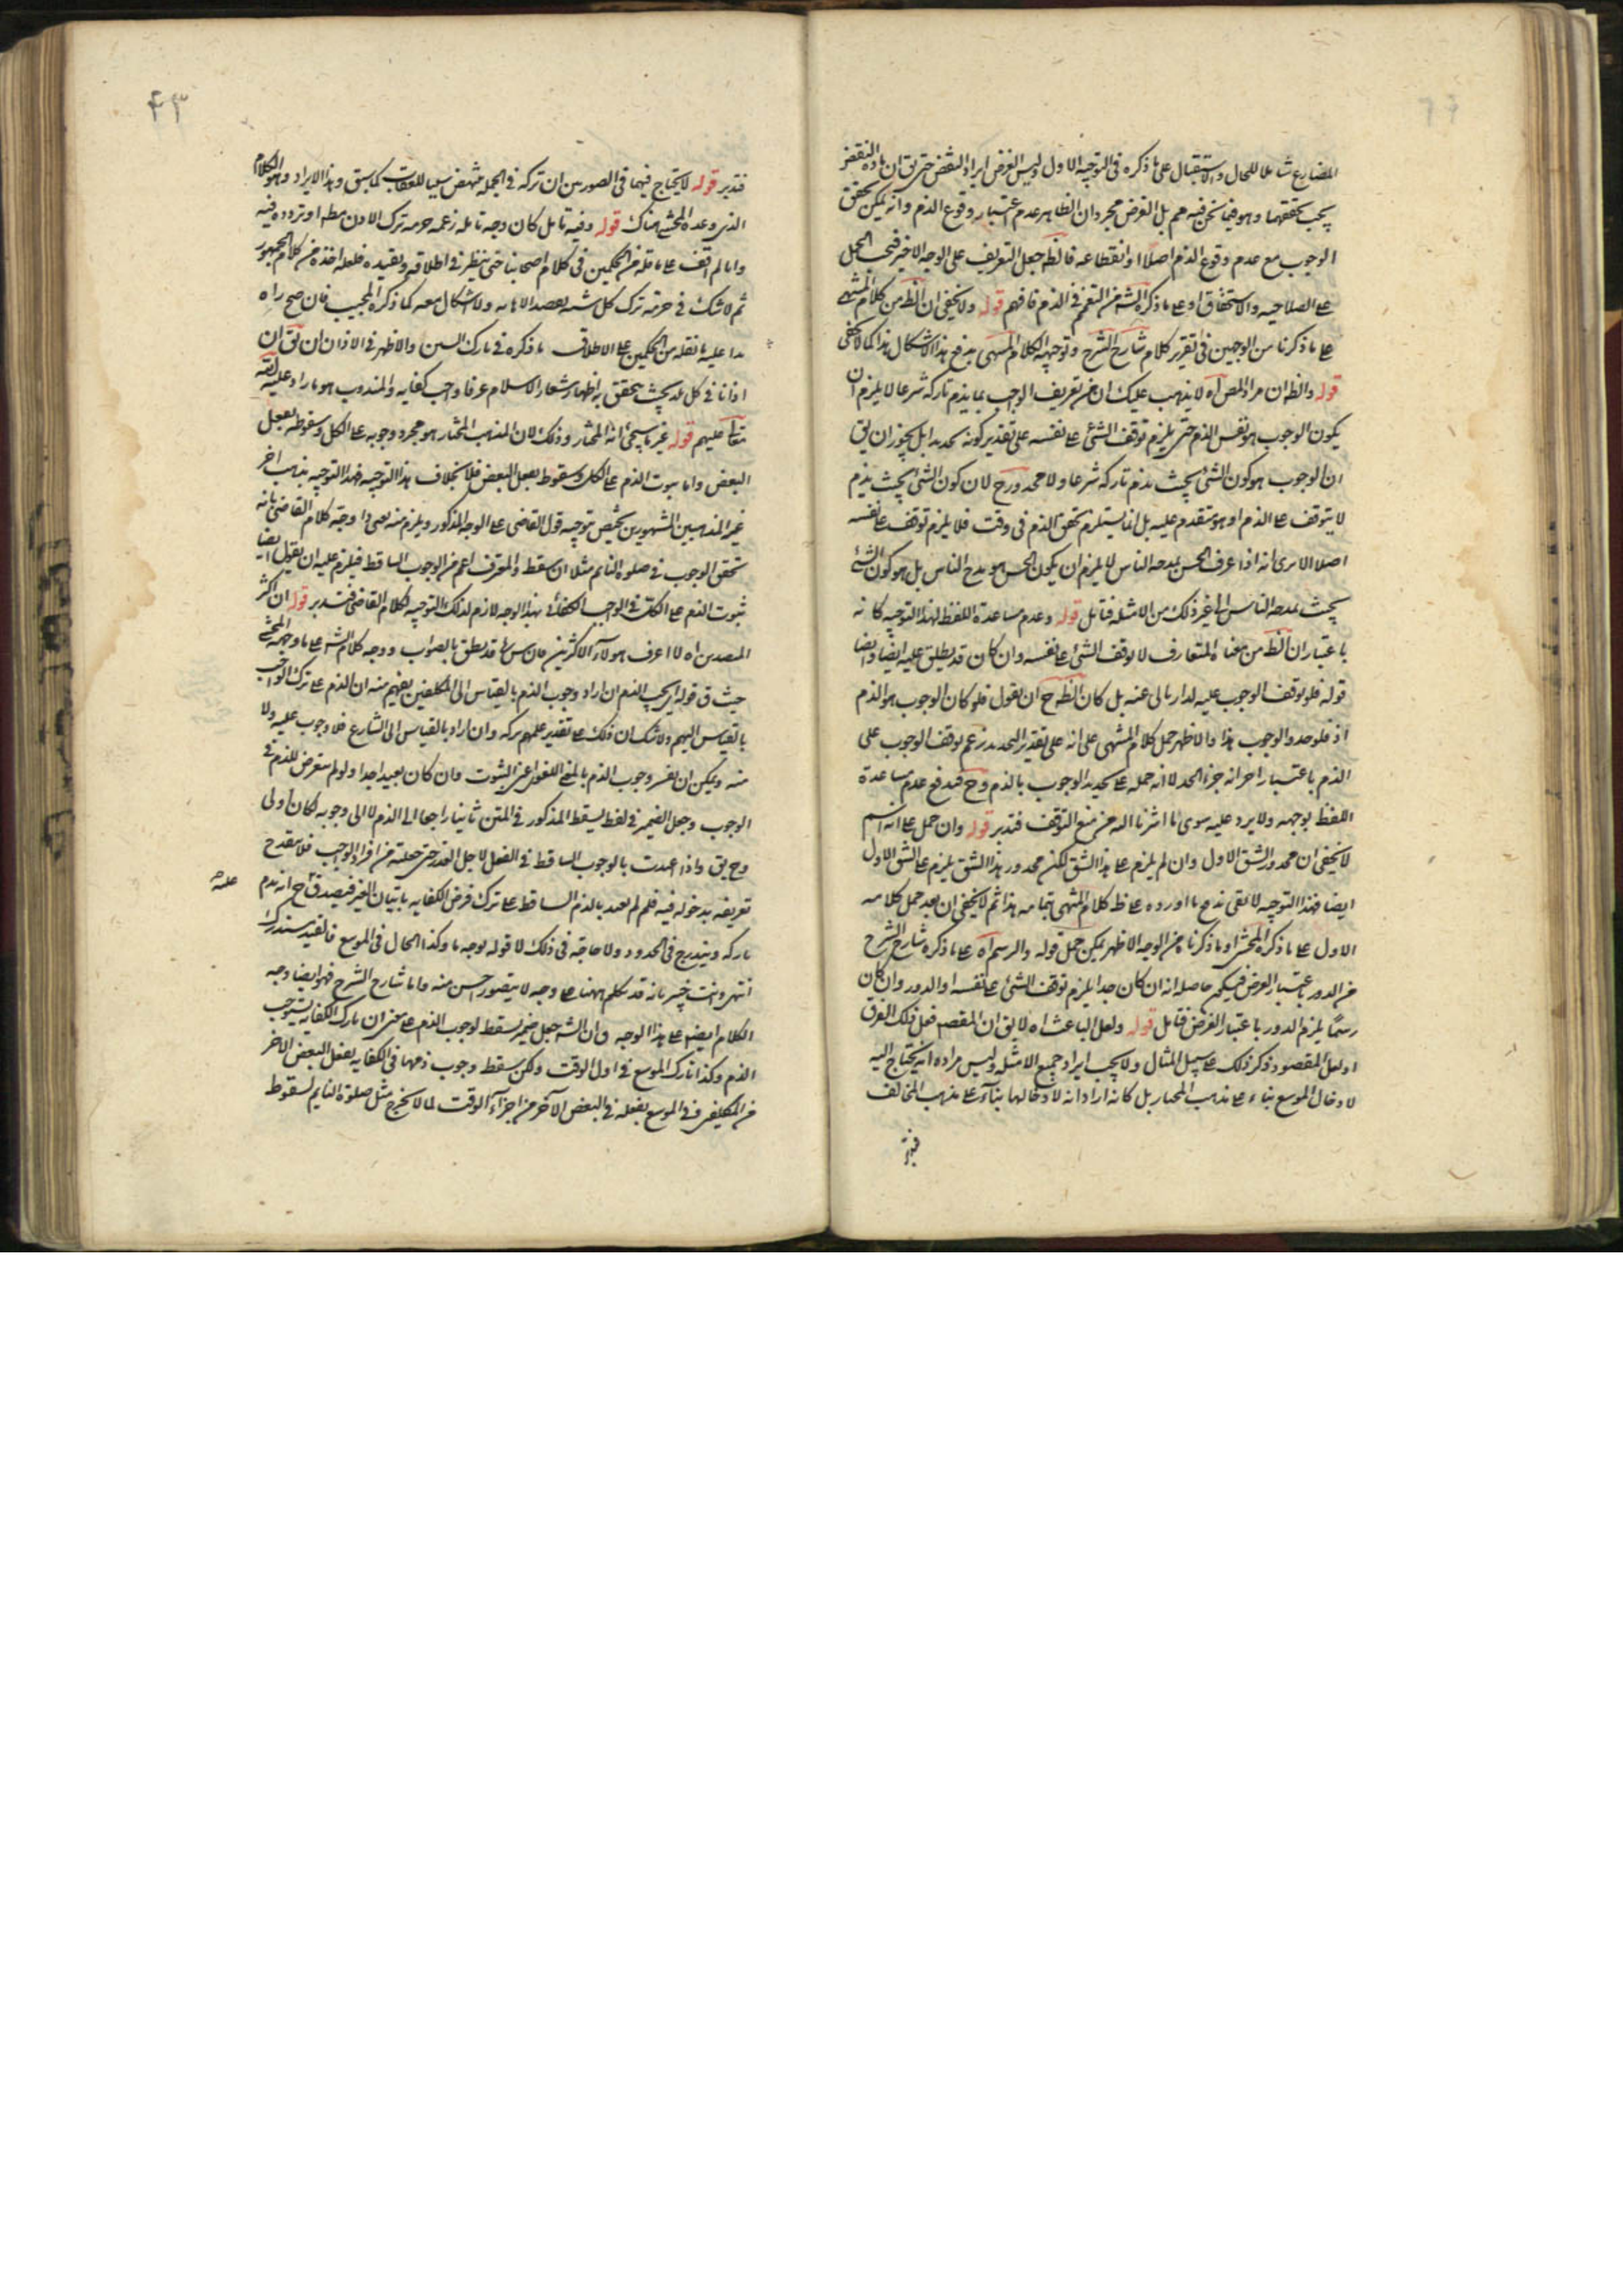 المضارع شاملا للحال والاستقبال على ما ذكره فى التوجيه الاول وليس الغرض ايراد النقض حتى يق ان مادة النقض
يجب تحققها وهو فيما نحن فيه مم بل الغرض مجرد ان الظاهر عدم اعتبار وقوع الذم وانه يمكن تحقق
الوجوب مع عدم وقوع الذم اصلا او انقطاعه فالظ جعل التعريف على الوجه الاخير فيجب الحمل
على الصلاحيه والاستحقاق او على ما ذكره الش من التعميم فى الذم فافهم قوله ولا يخفى ان الظ من كلام المنتهى
على ما ذكرنا من الوجهين فى تقرير كلام شارح الشرح وتوجيه الكلام المنتهى يدفع هذا الاشكال هذا كما لا يخفى
قوله والظ ان مراد المص اه لا يذهب عليك ان من تعريف الواجب بما يذم تاركه شرعا لا يلزم ان
يكون الوجوب هو نفس الذم حتى يلزم توقف الشئ على نفسه على تقدير كونه تحديدا بل يجوز ان يق
ان الوجوب هو كون الشئ بحيث يذم تاركه شرعا ولا محذور ح لان كون الشئ بحيث يذم
لا يتوقف على الذم او هو متقدم عليه بل انما يستلزم تحقق الذم فى وقت فلا يلزم توقف على نفسه
اصلا الا ترى انه اذا عرف الحسن بمدحه الناس لا يلزم ان يكون الحسن هو مدح الناس بل هو كون الشئ
بحيث يمدحه الناس الى غير ذلك من الامثله فتامل قوله وعدم مساعدة اللفظ لهذا التوجيه كانه
باعتبار ان الظ من معناه المتعارف لا توقف الشئ على نفسه وان كان قد يطلق عليه ايضا وايضا
قوله فلو توقف الوجوب عليه لدار بل كان الظ ح ان يقول فلو كان الوجوب هو الذم
اذ فلو حد والوجوب هذا والاظهر حمل كلام المنتهى على انه على تقدير التحديد زعم توقف الوجوب على
الذم باعتبار اخر انه جزء الحد لا انه حمله على تحديد الوجوب بالذم وح فيدفع عدم مساعدة
اللفظ بوجهه ولا يرد عليه سوى ما اشرنا اليه من منع التوقف فتدبر قوله وان حمل على انه اسم
لا يخفى ان محذور الشق الاول وان لم يلزم على هذا الشق لكن محذور هذا الشق يلزم على الشق الاول
ايضا فهذا التوجيه لا يفى بدفع ما اورده على ظ كلام المنتهى بتمامه هذا ثم لا يخفى ان بعد حمل كلامه
الاول على ما ذكره المحشى او ما ذكرنا من الوجه الاظهر يمكن حمل قوله والرسم اه على ما ذكره شارح الشرح
من الدور باعتبار العرض فيكون حاصله انه ان كان حدا يلزم توقف الشئ على نفسه او الدور وان كان
رسمًا يلزم الدور باعتبار الغرض فتامل قوله ولعل الباعث اه لا يق ان المقصم فعل فلك الفرق
او لعل المقصود ذكر ذلك على سبيل المثال ولا يجب ايراد جميع الامثله وليس مراده انه يحتاج اليه
لادخال الموسع بناء على مذهب المختار بل كانه اراد انه لادخالها بناء على مذهب المخالف
٤٣
فتدبر قوله لا يحتاج فيهما فى الصورتين ان تركه فى الجمله ينهض سببا للعقاب كما سبق وهذا الايراد وهو الكلام
الذى وعده المحشى هناك قوله وفيه تامل كان وجه تامله زعمه حرمه ترك الاذان مطه او تردده فيه
وانا لم اقف على ما نقله من الحكمين فى كلام اصحابنا حتى ننظر فى اطلاقه وتقييده فلعله اخذه من كلام الجمهور
ثم لا شك فى حرمة ترك كل سنه بقصد الاهانه ولا اشكال معه كما ذكره المجيب فان صح راه
بدا عليه ما نقله من الحكمين على الاطلاق ما ذكره فى تارك السنن والاظهر فى الاذان ان يق ان
اذانا فى كل بلد بحيث يتحقق به اظهار شعار الاسلام عرفا واجب كفايه والمندوب هو ما زاد عليه
تعالى عليهم قوله غير ما سيجئ انه المختار وذلك لان المذهب المختار هو مجرد وجوبه على الكل وسقوطه بفعل
البعض واما ثبوت الذم على الكل وسقوط بفعل البعض فلا بخلاف هذا التوجيه فهذا التوجيه بمذهب اخر
غير المذهبين المشهورين يختص بتوجيه قول القاضى على الوجه المذكور ويلزم منه وجه كلام القاضى بانه
تحقق الوجوب فى صلوة النايم مثلا ان سقط والمعرف اعم من الوجوب الساقط فيلزم عليه ان يقول ايضا
ثبوت الذم على الكل فى الواجب الكفائى بهذا الوجه لازم لذلك التوجيه لكلام القاضى فتدبر قوله ان اكثر
المتصدين اه لا اعرف هولاء الاكثرين فان قد نطق بالصواب ووجه كلام الش على ما وجهه المحشى
حيث ق قوله اى يجب الذم ان اراد وجوب الذم بالقياس الى المكلفين يفهم منه ان الذم على ترك الواجب
بالقياس اليهم ولا شك ان ذلك على تقدير علمهم بتركه وان اراد بالقياس الى الشارع فلا وجوب عليه ولا
منه ويمكن ان يفسر وجوب الذم بالمعنى اللغوى اعنى الثبوت وان كان بعيدا جدا ولو لم يتعرض للذم فى
الوجوب وجعل الضمير فى لفظ يسقط المذكور فى المتن ثانيا راجعا الى الذم لا الى وجوبه لكان اولى
وح يق واذا اعتددت بالوجوب الساقط فى الفعل لاجل العذر حتى جعلته من افراد الواجب فلا يقدح
تعريفه بدخوله فيه فلم لم يعتد بالذم الساقط على ترك فرض الكفايه باتيان الغير فيصدق ح انه يذم
تاركه ويندرج فى الحدود ولا حاجة فى ذلك لا قوله بوجه ما وكذا الحال فى الموسع فالقيد مستدرك
انتهى وانت خبير بانه قد تكلم ههنا على وجه لا يتصور احسن منه واما شارح الشرح فهو ايضا وجه
الكلام ايضم على هذا الوجه وق ان الش جعل ضمير يسقط لوجوب الذم على معنى ان تارك الكفايه يستوجب
الذم وكذا تارك الموسع فى اول الوقت ولكن سقط وجوب ذمهما فى الكفايه بفعل البعض الاخر
من المكلفين وفى الموسع بفعله فى البعض الآخر من اجزاء الوقت لما لا يخرج مثل صلوة النايم لسقوط